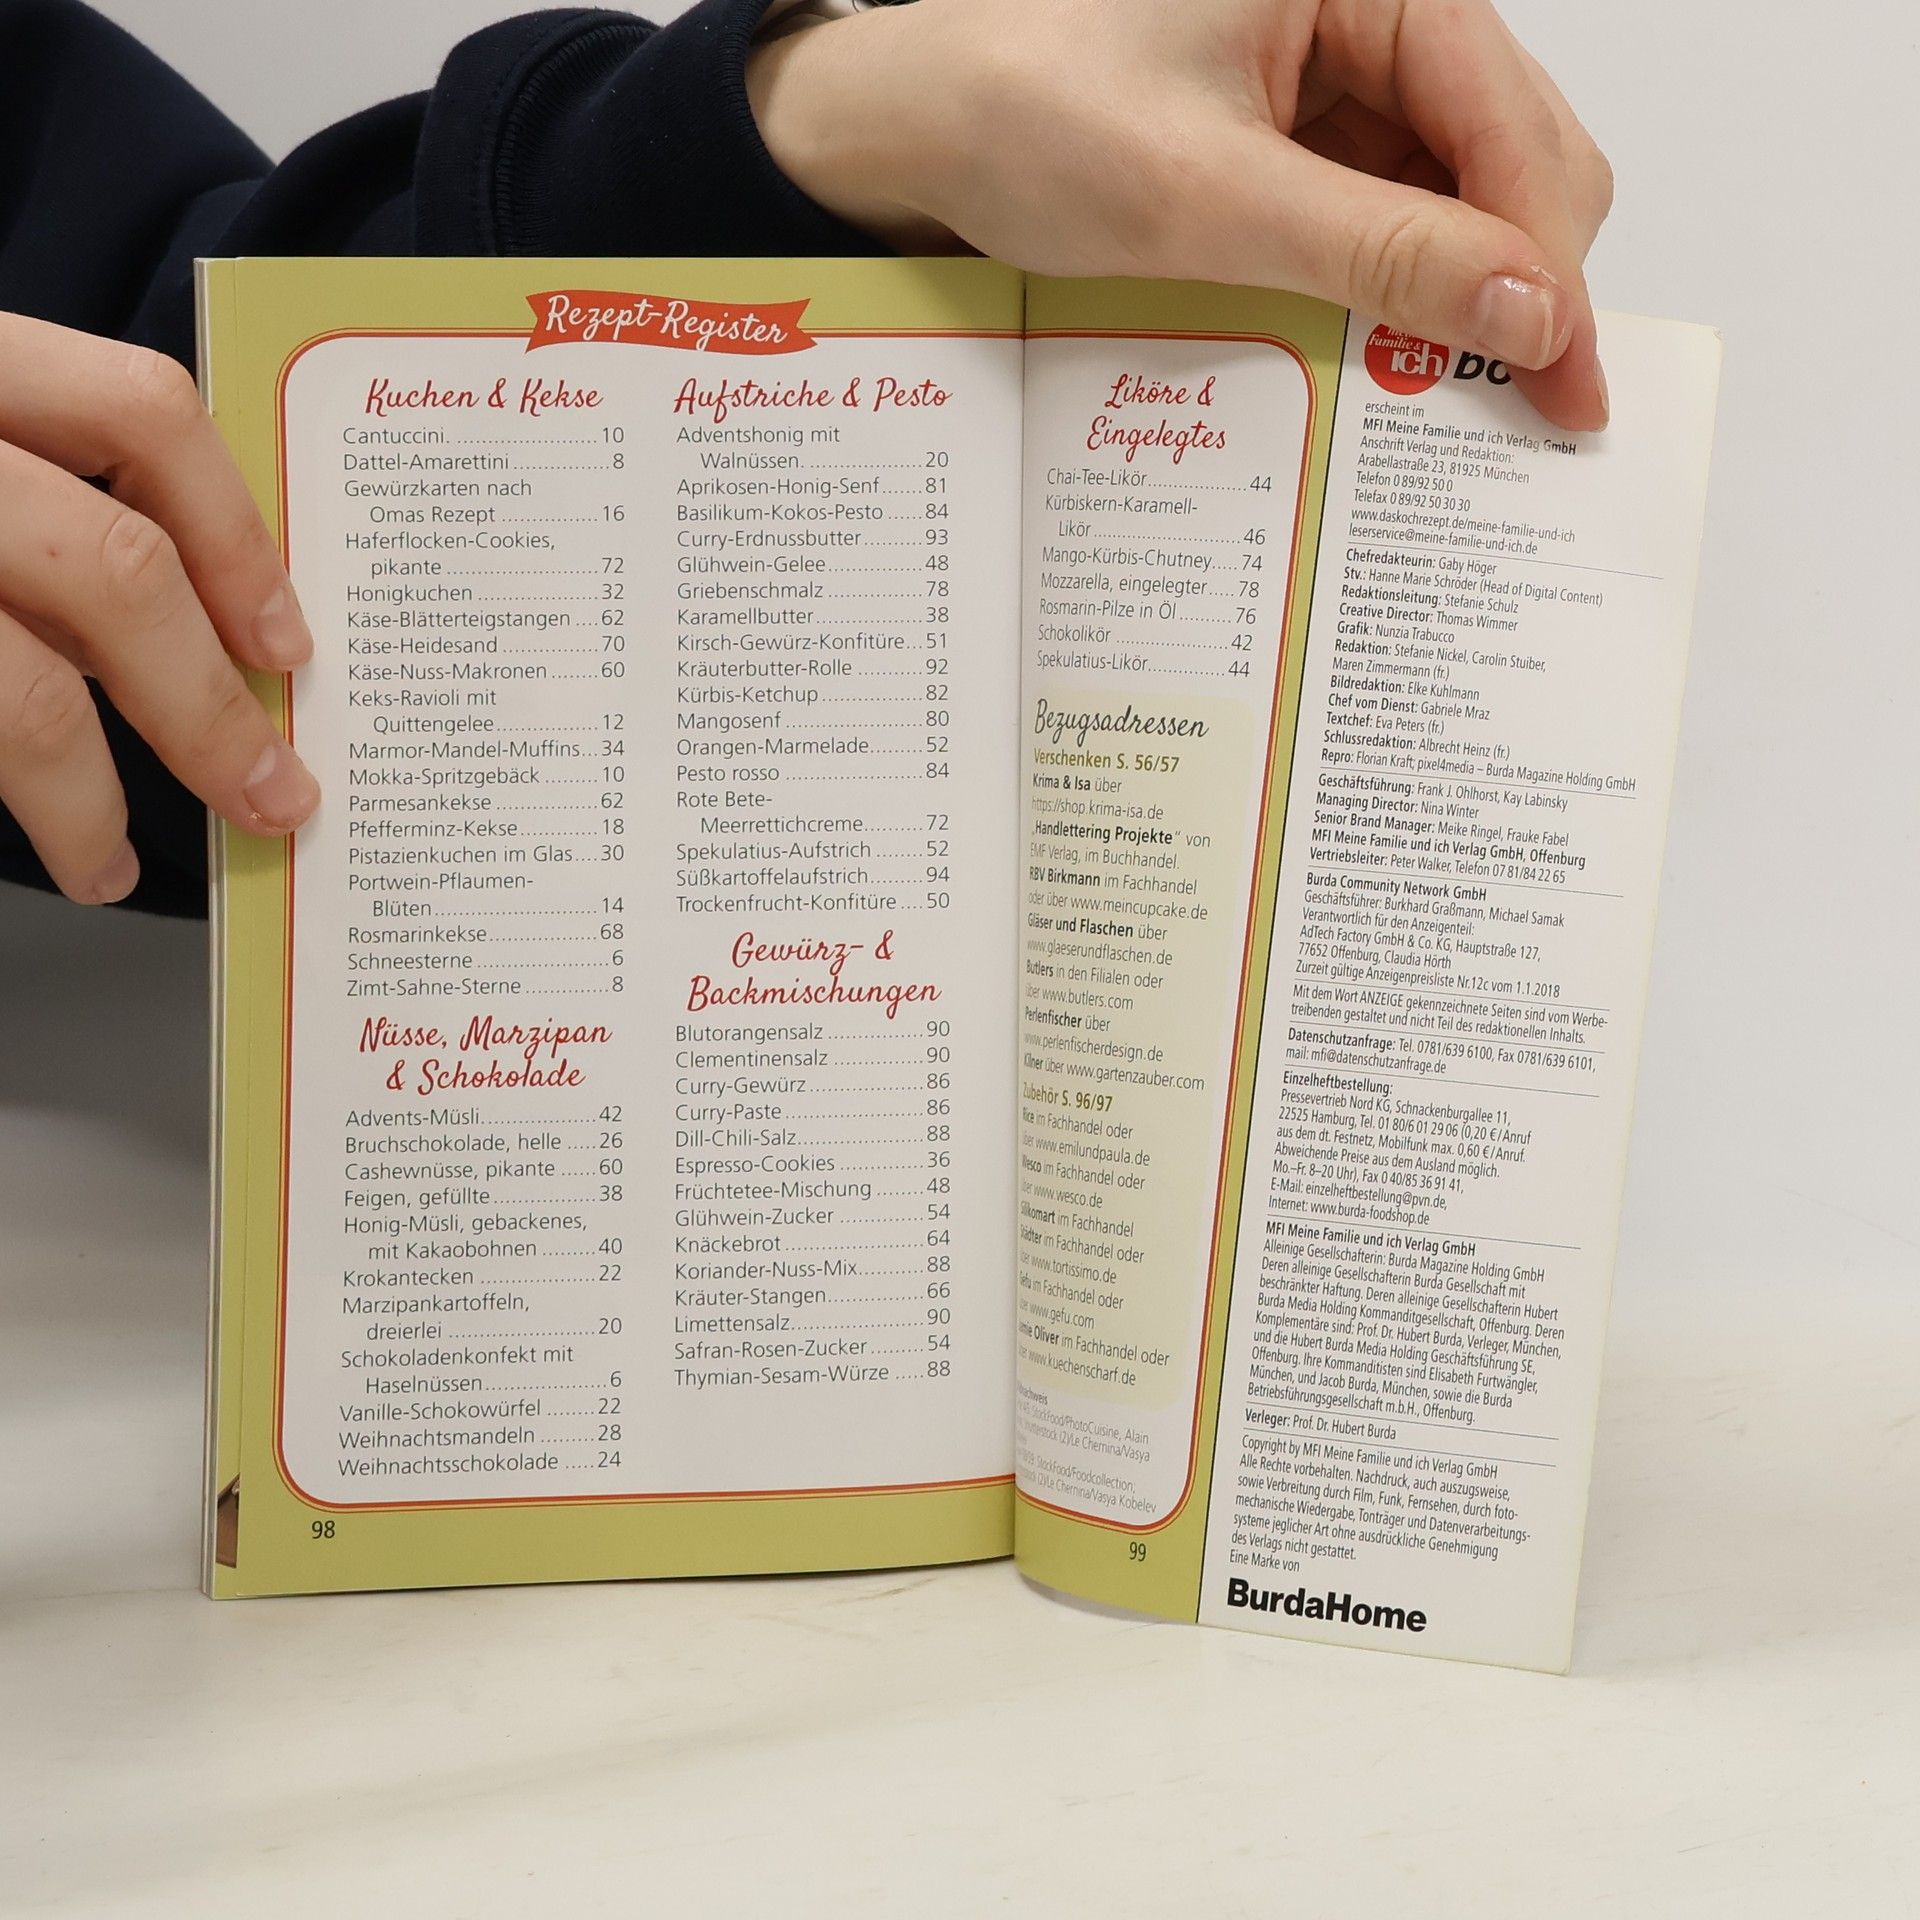 Rezept-Register
Kuchen & Kekse
Cantuccini. ........................ 10
Dattel-Amarettini ................. 8
Gewürzkarten nach
Omas Rezept ................. 16
Haferflocken-Cookies,
pikante .......................... 72
Honigkuchen ..................... 32
Käse-Blätterteigstangen .... 62
Käse-Heidesand ................. 70
Käse-Nuss-Makronen ........ 60
Keks-Ravioli mit
Quittengelee.................. 12
Marmor-Mandel-Muffins... 34
Mokka-Spritzgebäck ......... 10
Parmesankekse ................. 62
Pfefferminz-Kekse............. 18
Pistazienkuchen im Glas.... 30
Portwein-Pflaumen-
Blüten............................ 14
Rosmarinkekse.................. 68
Schneesterne ...................... 6
Zimt-Sahne-Sterne ............. 8
Nüsse, Marzipan
& Schokolade
Advents-Müsli................... 42
Bruchschokolade, helle ..... 26
Cashewnüsse, pikante ...... 60
Feigen, gefüllte.................. 38
Honig-Müsli, gebackenes,
mit Kakaobohnen ......... 40
Krokantecken .................... 22
Marzipankartoffeln,
dreierlei ......................... 20
Schokoladenkonfekt mit
Haselnüssen.................... 6
Vanille-Schokowürfel ........ 22
Weihnachtsmandeln ......... 28
Weihnachtsschokolade ..... 24
98
Aufstriche & Pesto
Adventshonig mit
Walnüssen. ................... 20
Aprikosen-Honig-Senf....... 81
Basilikum-Kokos-Pesto ...... 84
Curry-Erdnussbutter.......... 93
Glühwein-Gelee................ 48
Griebenschmalz ................ 78
Karamellbutter.................. 38
Kirsch-Gewürz-Konfitüre... 51
Kräuterbutter-Rolle ........... 92
Kürbis-Ketchup ................. 82
Mangosenf ....................... 80
Orangen-Marmelade......... 52
Pesto rosso ....................... 84
Rote Bete-
Meerrettichcreme.......... 72
Spekulatius-Aufstrich ........ 52
Süßkartoffelaufstrich......... 94
Trockenfrucht-Konfitüre .... 50
Gewürz- &
Backmischungen
Blutorangensalz ................ 90
Clementinensalz ............... 90
Curry-Gewürz ................... 86
Curry-Paste ....................... 86
Dill-Chili-Salz..................... 88
Espresso-Cookies .............. 36
Früchtetee-Mischung ........ 48
Glühwein-Zucker .............. 54
Knäckebrot ....................... 64
Koriander-Nuss-Mix........... 88
Kräuter-Stangen................ 66
Limettensalz...................... 90
Safran-Rosen-Zucker ......... 54
Thymian-Sesam-Würze ..... 88
Liköre &
Eingelegtes
Chai-Tee-Likör.................. 44
Kürbiskern-Karamell-
Likör............................. 46
Mango-Kürbis-Chutney..... 74
Mozzarella, eingelegter..... 78
Rosmarin-Pilze in Öl .......... 76
Schokolikör ................... 42
Spekulatius-Likör............. 44
Bezugsadressen
Verschenken S. 56/57
Krima & Isa über
https://shop.krima-isa.de
„Handlettering Projekte" von
EMF Verlag, im Buchhandel.
RBV Birkmann im Fachhandel
oder über www.meincupcake.de
Gläser und Flaschen über
www.glaeserundflaschen.de
Butlers in den Filialen oder
über www.butlers.com
Perlenfischer über
www.perlenfischerdesign.de
Kilner über www.gartenzauber.com
Zubehör S. 96/97
Rice im Fachhandel oder
über www.emilundpaula.de
Wesco im Fachhandel oder
über www.wesco.de
im Fachhandel
Städter im Fachhandel oder
über www.tortissimo.de
Gefu im Fachhandel oder
über www.gefu.com
Jamie Oliver im Fachhandel oder
über www.kuechenscharf.de
StockFood/PhotoCuisine, Alain
(2)/Le Chernina/Vasya
StockFood/Foodcollection;
(2)/Le Chernina/Vasya Kobelev
99
Familie &
ich
erscheint im
MFI Meine Familie und ich Verlag GmbH
Anschrift Verlag und Redaktion:
Arabellastraße 23, 81925 München
Telefon 0 89/92 50 0
Telefax 0 89/92 50 30 30
www.daskochrezept.de/meine-familie-und-ich
leserservice@meine-familie-und-ich.de
Chefredakteurin: Gaby Höger
Stv.: Hanne Marie Schröder (Head of Digital Content)
Redaktionsleitung: Stefanie Schulz
Creative Director: Thomas Wimmer
Grafik: Nunzia Trabucco
Redaktion: Stefanie Nickel, Carolin Stuiber,
Maren Zimmermann (fr.)
Bildredaktion: Elke Kuhlmann
Chef vom Dienst: Gabriele Mraz
Textchef: Eva Peters (fr.)
Schlussredaktion: Albrecht Heinz (fr.)
Repro: Florian Kraft; pixel4media – Burda Magazine Holding GmbH
Geschäftsführung: Frank J. Ohlhorst, Kay Labinsky
Managing Director: Nina Winter
Senior Brand Manager: Meike Ringel, Frauke Fabel
MFI Meine Familie und ich Verlag GmbH, Offenburg
Vertriebsleiter: Peter Walker, Telefon 07 81/84 22 65
Burda Community Network GmbH
Geschäftsführer: Burkhard Graßmann, Michael Samak
Verantwortlich für den Anzeigenteil:
AdTech Factory GmbH & Co. KG, Hauptstraße 127,
77652 Offenburg, Claudia Hörth
Zurzeit gültige Anzeigenpreisliste Nr.12c vom 1.1.2018
Mit dem Wort ANZEIGE gekennzeichnete Seiten sind vom Werbe-
treibenden gestaltet und nicht Teil des redaktionellen Inhalts.
Datenschutzanfrage: Tel. 0781/639 6100, Fax 0781/639 6101,
mail: mfi@datenschutzanfrage.de
Einzelheftbestellung:
Pressevertrieb Nord KG, Schnackenburgallee 11,
22525 Hamburg, Tel. 01 80/6 01 29 06 (0,20 €/Anruf
aus dem dt. Festnetz, Mobilfunk max. 0,60 €/Anruf.
Abweichende Preise aus dem Ausland möglich.
Mo.–Fr. 8–20 Uhr), Fax 0 40/85 36 91 41,
E-Mail: einzelheftbestellung@pvn.de,
Internet: www.burda-foodshop.de
MFI Meine Familie und ich Verlag GmbH
Alleinige Gesellschafterin: Burda Magazine Holding GmbH
Deren alleinige Gesellschafterin Burda Gesellschaft mit
beschränkter Haftung. Deren alleinige Gesellschafterin Hubert
Burda Media Holding Kommanditgesellschaft, Offenburg. Deren
Komplementäre sind: Prof. Dr. Hubert Burda, Verleger, München,
und die Hubert Burda Media Holding Geschäftsführung SE,
Offenburg. Ihre Kommanditisten sind Elisabeth Furtwängler,
München, und Jacob Burda, München, sowie die Burda
Betriebsführungsgesellschaft m.b.H., Offenburg.
Verleger: Prof. Dr. Hubert Burda
Copyright by MFI Meine Familie und ich Verlag GmbH
Alle Rechte vorbehalten. Nachdruck, auch auszugsweise,
sowie Verbreitung durch Film, Funk, Fernsehen, durch foto-
mechanische Wiedergabe, Tonträger und Datenverarbeitungs-
systeme jeglicher Art ohne ausdrückliche Genehmigung
des Verlags nicht gestattet.
Eine Marke von
BurdaHome